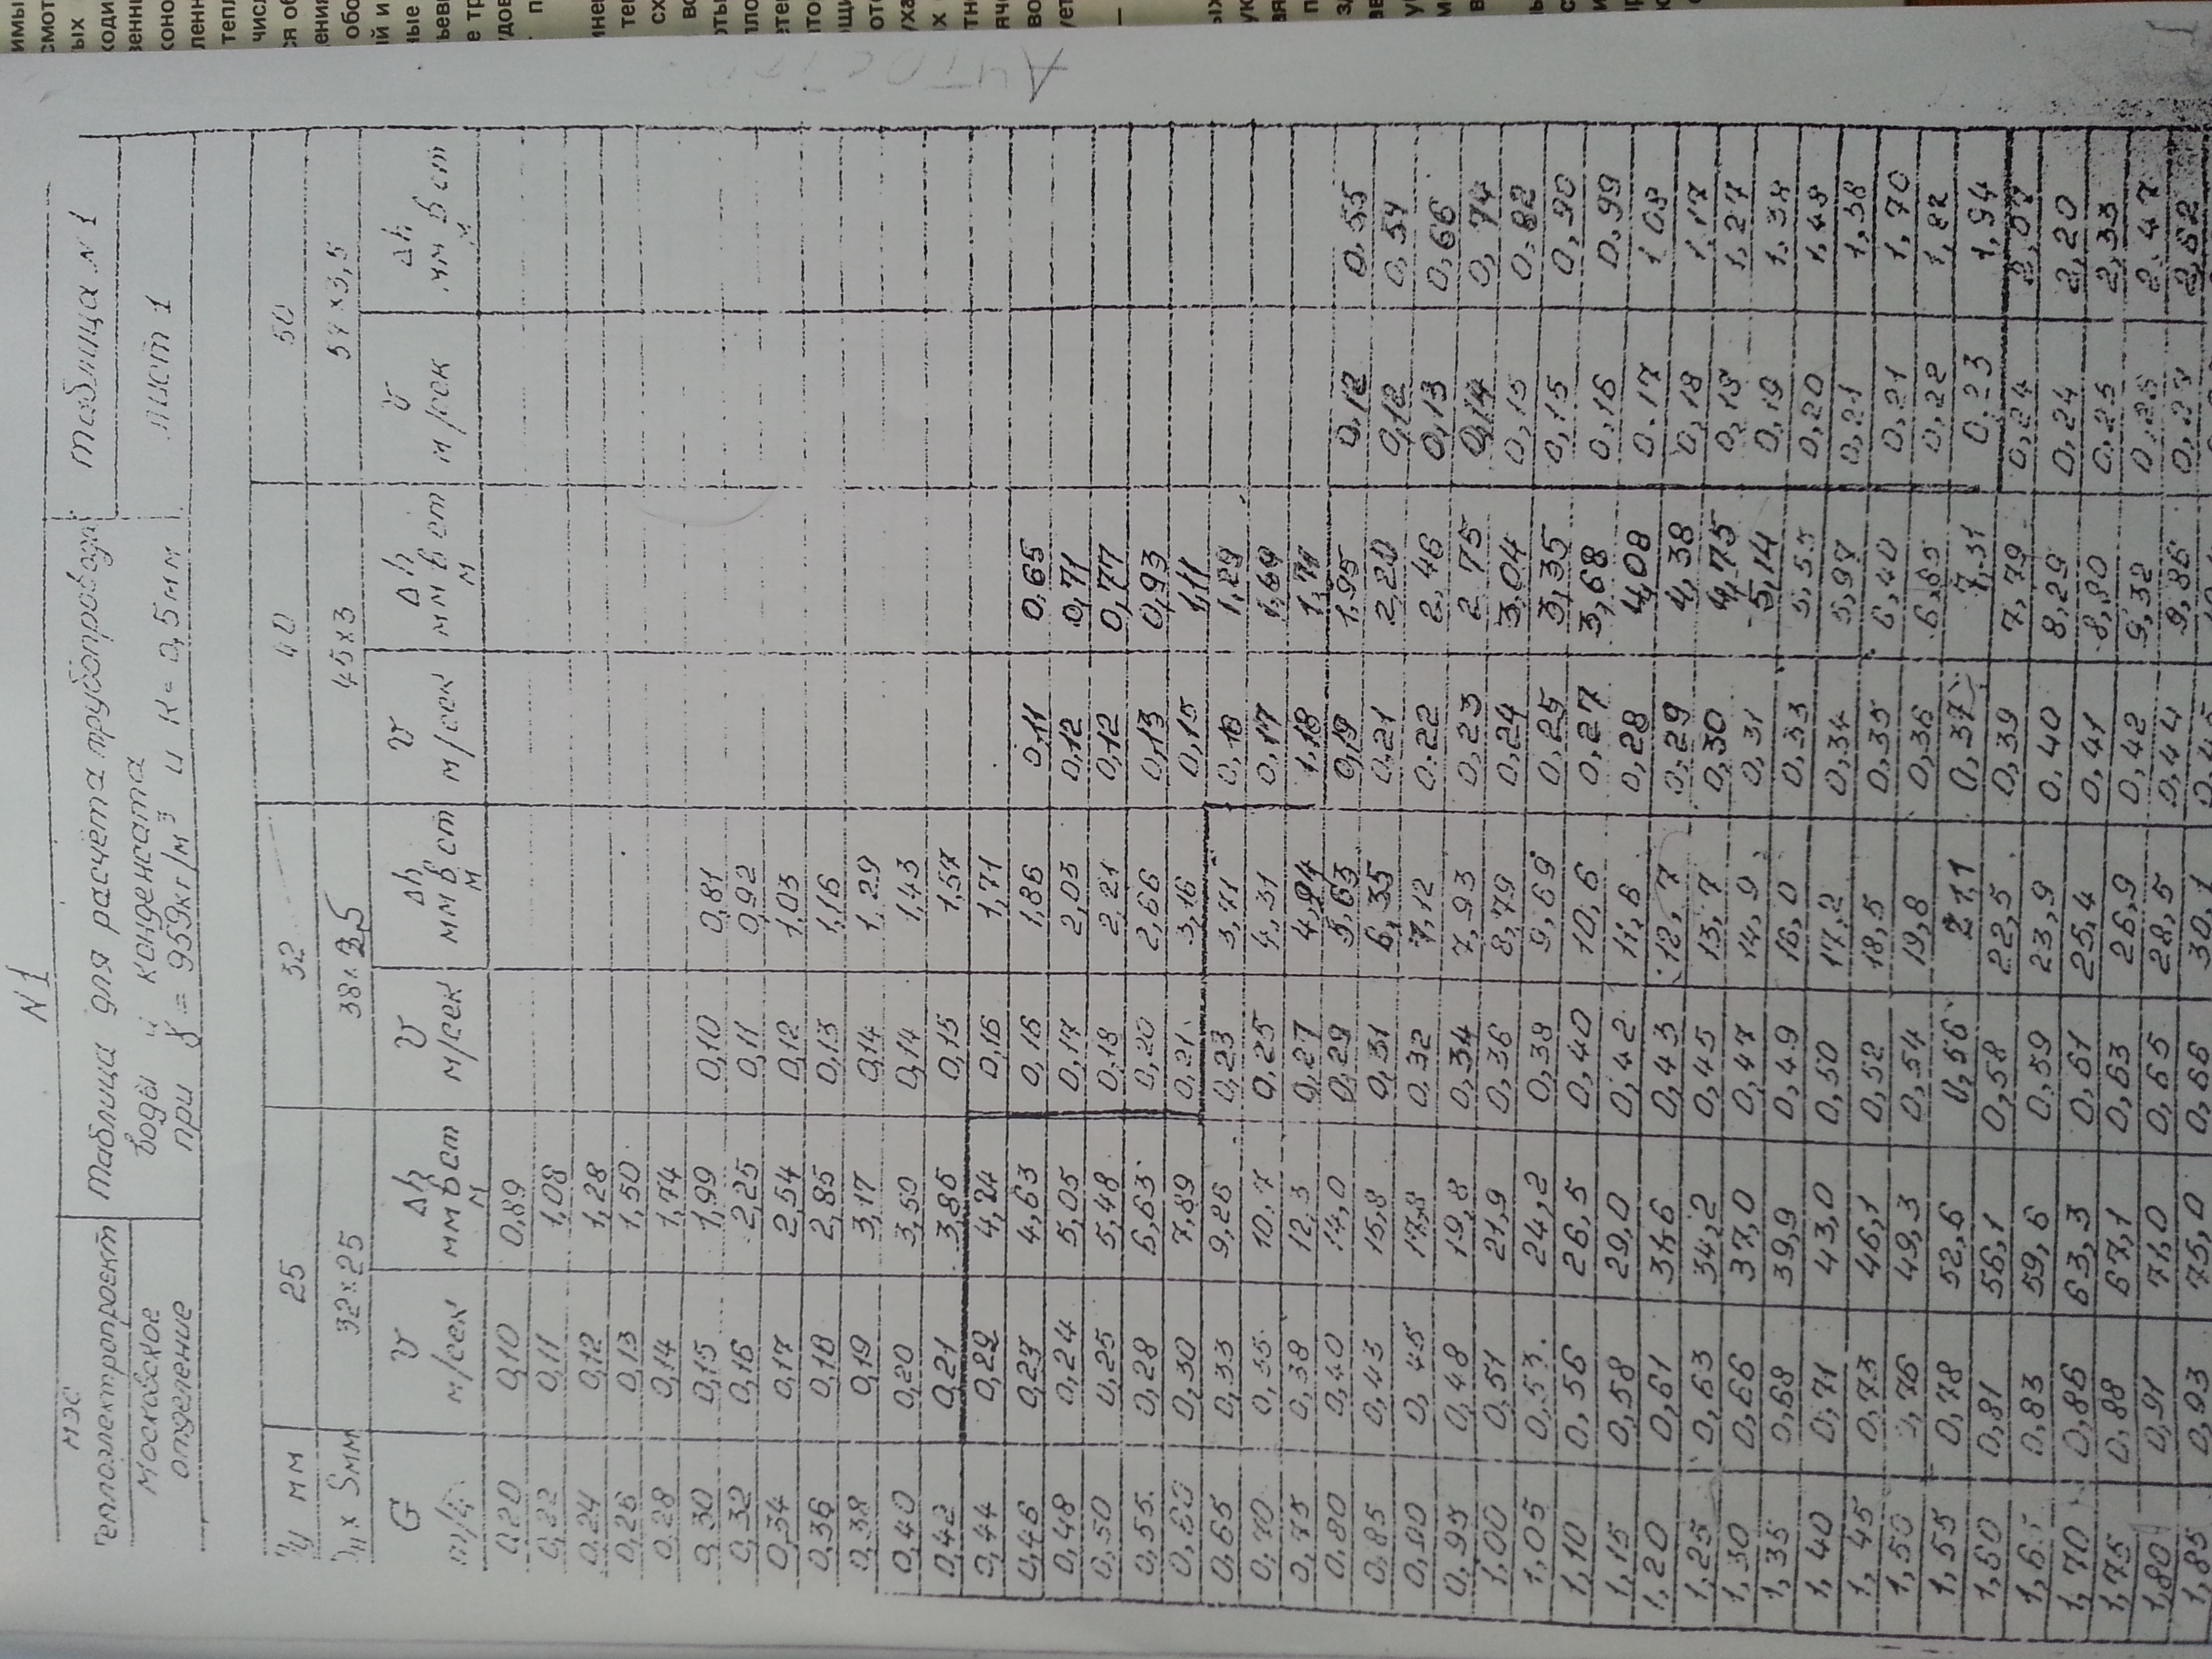 N1
МЭС
Теплоэлектропроект
Московское
отделение
Таблица для расчёта трубопровода
воды и конденсата
при γ = 959кг/м³ и К=0,5мм
таблица N1
лист 1
Ду мм 25 32 40 50
Dн x Sмм 32x25 38x2,5 45x3 57x3,5
G т/ч
V м/сек Δh мм в ст м V м/сек Δh мм в ст м V м/сек Δh мм в ст м V м/сек Δh мм в ст м
0,20 0,10 0,89
0,22 0,11 1,08
0,24 0,12 1,28
0,26 0,13 1,50
0,28 0,14 1,74
0,30 0,15 1,99 0,10 0,81
0,32 0,16 2,25 0,11 0,92
0,34 0,17 2,54 0,12 1,03
0,36 0,18 2,85 0,13 1,16
0,38 0,19 3,17 0,14 1,29
0,40 0,20 3,50 0,14 1,43
0,42 0,21 3,86 0,15 1,57
0,44 0,22 4,24 0,16 1,71
0,46 0,23 4,63 0,16 1,86 0,11 0,65
0,48 0,24 5,05 0,17 2,03 0,12 0,71
0,50 0,25 5,48 0,18 2,21 0,12 0,77
0,55 0,28 6,63 0,20 2,66 0,13 0,93
0,60 0,30 7,89 0,21 3,16 0,15 1,11
0,65 0,33 9,26 0,23 3,71 0,16 1,29
0,70 0,35 10,7 0,25 4,31 0,17 1,49
0,75 0,38 12,3 0,27 4,94 1,18 1,71
0,80 0,40 14,0 0,29 5,63 0,19 1,95 0,12 0,53
0,85 0,43 15,8 0,31 6,35 0,21 2,20 0,12 0,54
0,90 0,45 17,8 0,32 7,12 0,22 2,46 0,13 0,66
0,95 0,48 19,8 0,34 7,93 0,23 2,75 0,14 0,74
1,00 0,51 21,9 0,36 8,79 0,24 3,04 0,15 0,82
1,05 0,53 24,2 0,38 9,69 0,25 3,35 0,15 0,90
1,10 0,56 26,5 0,40 10,6 0,27 3,68 0,16 0,99
1,15 0,58 29,0 0,42 11,6 0,28 4,08 0.17 1,08
1,20 0,61 31,6 0,43 12,7 0,29 4,38 0,18 1,17
1,25 0,63 34,2 0,45 13,7 0,30 4,75 0,18 1,27
1,30 0,66 37,0 0,47 14,9 0,31 5,14 0,19 1,38
1,35 0,68 39,9 0,49 16,0 0,33 5,55 0,20 1,48
1,40 0,71 43,0 0,50 17,2 0,34 5,97 0,21 1,58
1,45 0,73 46,1 0,52 18,5 0,35 6,40 0,21 1,70
1,50 0,76 49,3 0,54 19,8 0,36 6,85 0,22 1,82
1,55 0,78 52,6 0,56 21,1 0,37 7,31 0,23 1,94
1,60 0,81 56,1 0,58 22,5 0,39 7,79 0,24 2,07
1,65 0,83 59,6 0,59 23,9 0,40 8,29 0,24 2,20
1,70 0,86 63,3 0,61 25,4 0,41 8,80 0,25 2,33
1,75 0,88 67,1 0,63 26,9 0,42 9,32 2,47
1,80 0,91 71,0 0,65 28,5 0,44 9,86 2,62
1,85 0,93 75,0 0,66 30,1